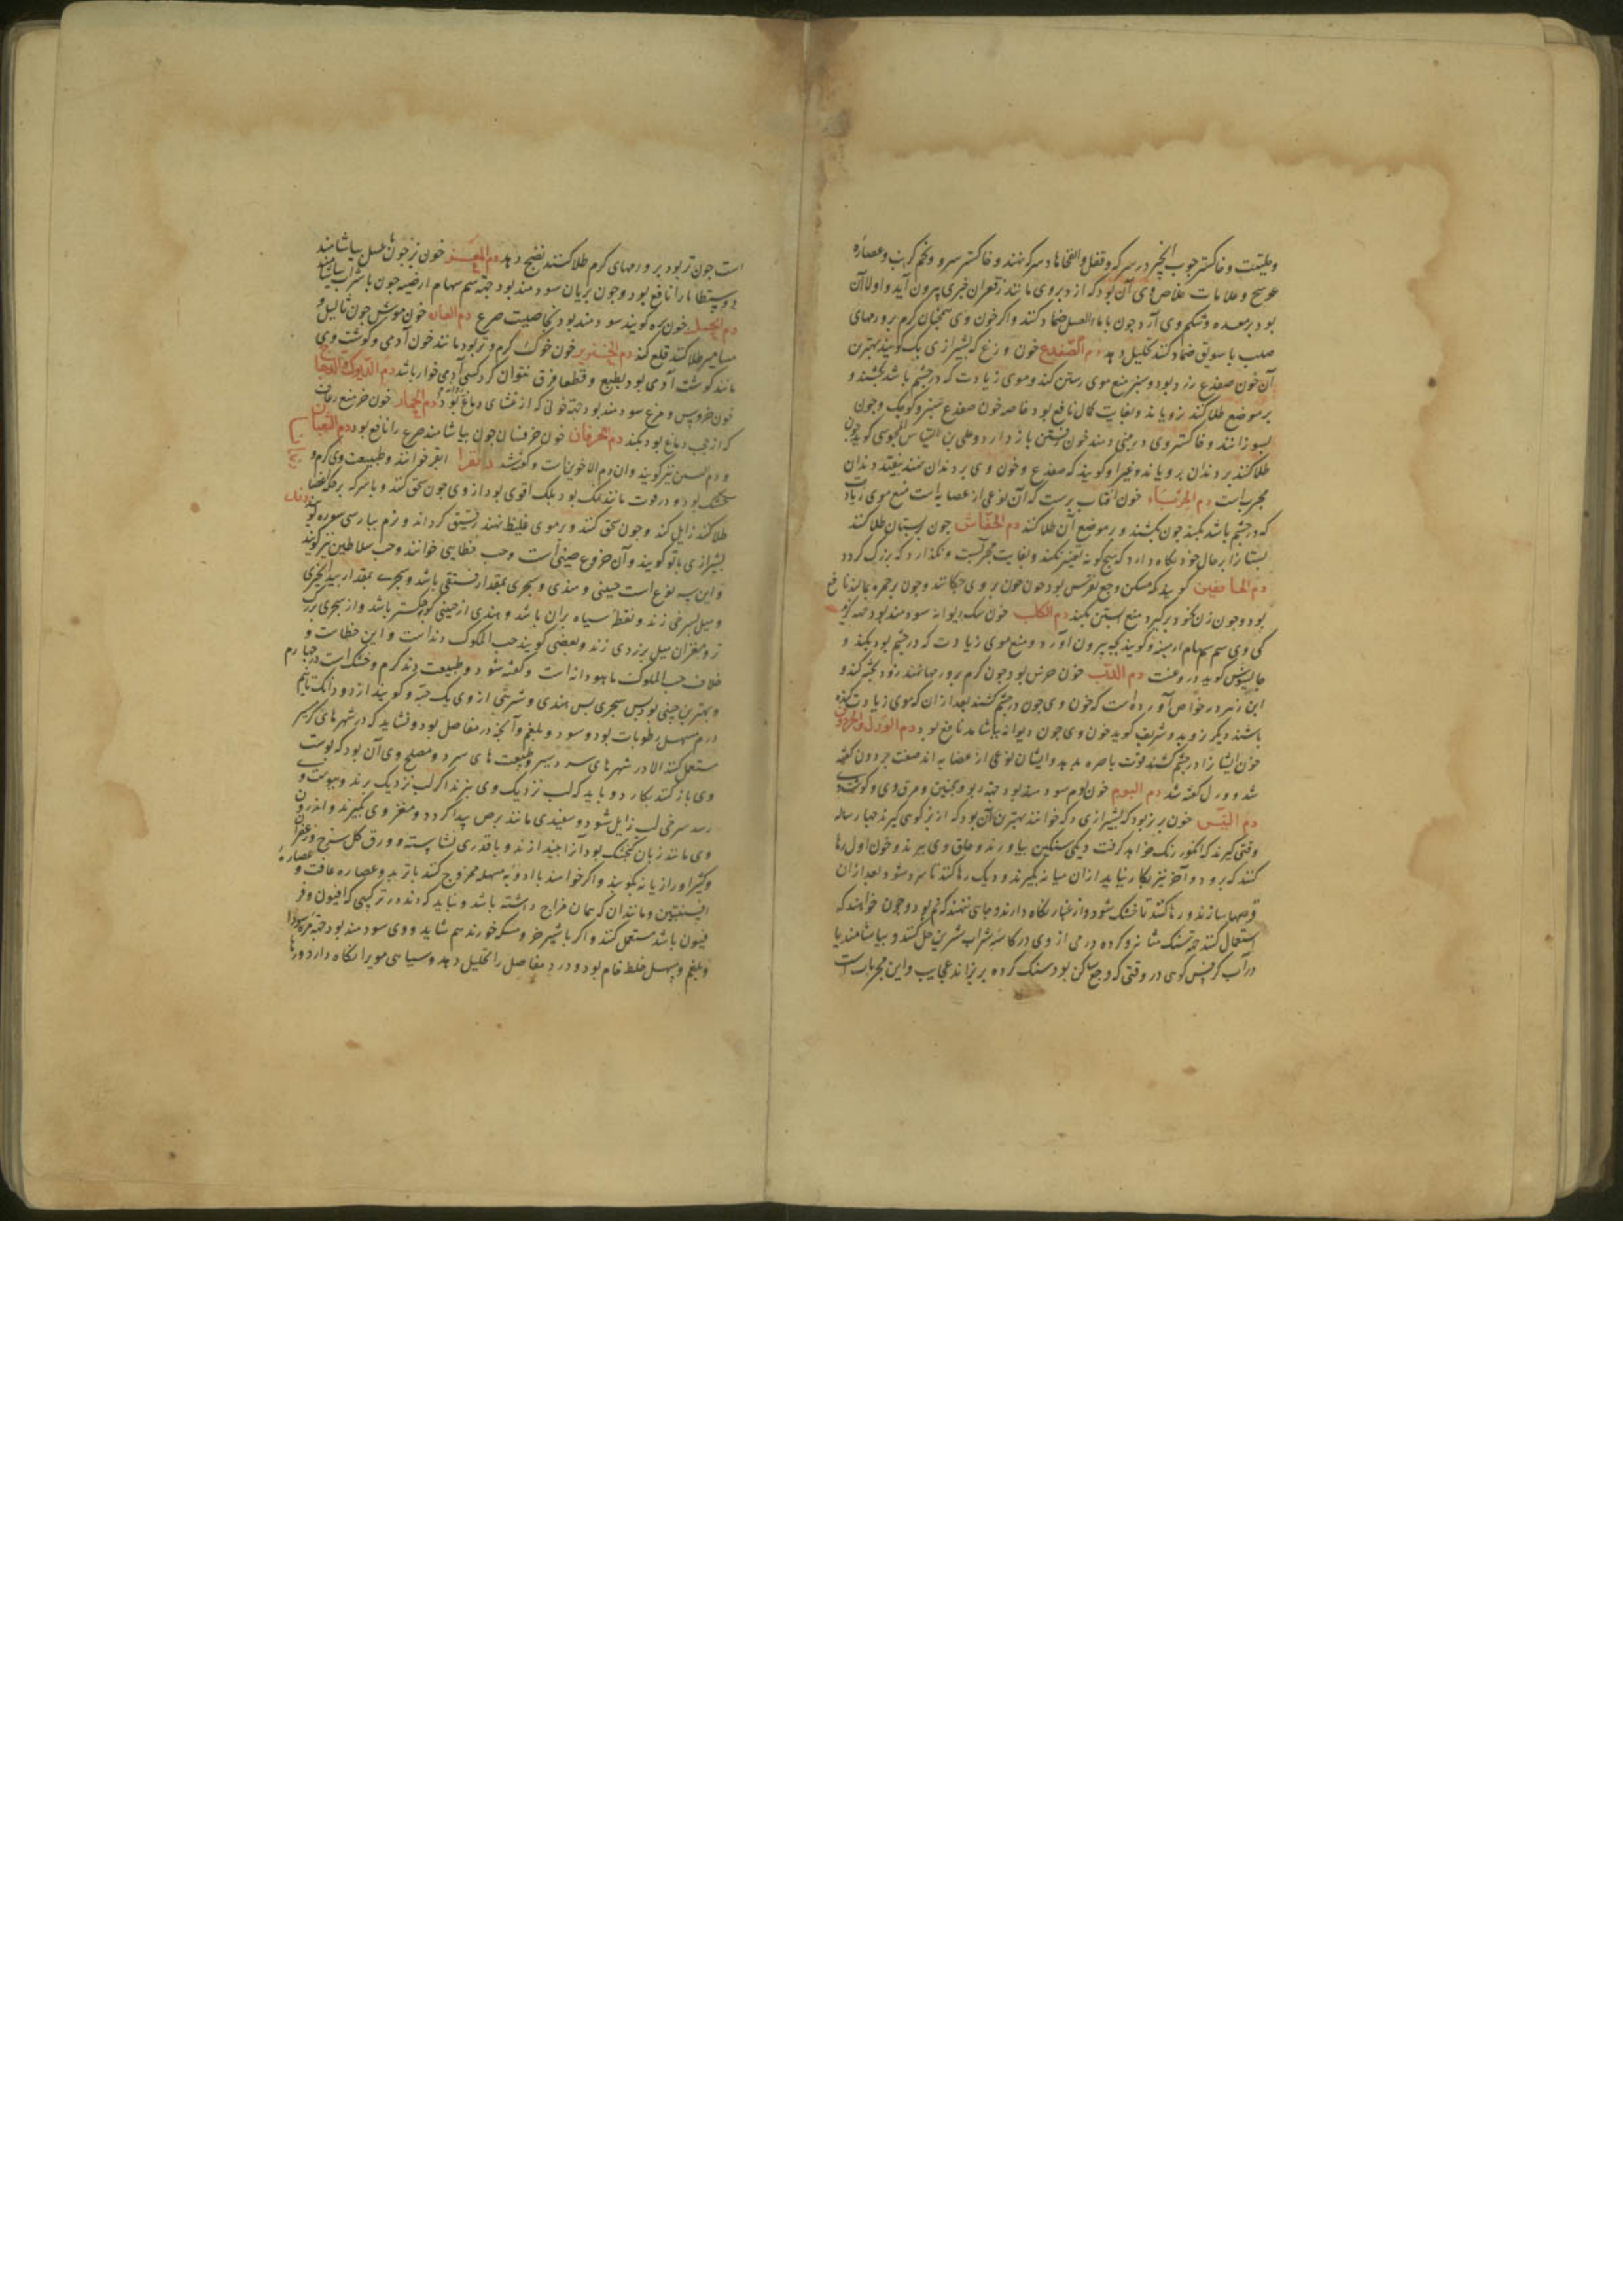 وحلتیت و خاکستر چوب انجیر در سرکه و فلفل و انفخها در سرکه نهند و خاکستر سرو و تخم کرنب و عصاره
عوسج و علامات خلاص وی آن بود که از دبر وی مانند زعفران چیزی بیرون آید و اولا آن
بود بر معده و شکم وی آرد جون با ماء العسل ضماد کنند و اکر خون وی همچنان کرم بر ورمهای
صلب با سویق ضماد کنند تحلیل دهد دم الضفدع خون وزغ که بشیرازی بک کویند بهترین
آن خون ضفدع زرد بود و سبز منع موی رستن کند و موی زیادت که در چشم باشد بکنند و
بر موضع طلا کنند نرویاند و بغایت کمال نافع بود خاصه خون ضفدع سبز و کوچک و چون
بسوزانند و خاکستر وی در بینی دمند خون رفتن باز دارد و علی بن العباس المجوسی کوید چون
طلا کنند بر دندان برویاند و غیر او کویند که ضفدع و خون وی بر دندان نهند بیفتد دندان
مجرب است دم الحرباء خون آفتاب پرست که آن نوعی از عضایه است منع موی زیادت
که در چشم باشد بکند چون بکنند و بر موضع آن طلا کنند دم الخفاش چون بر پستان طلا کنند
پستانرا بر حال خود نکاه دارد که هیچ کونه تغییر نکند و بغایت مجربست و نکذارد که بزرک کردد
کویند که مسکن وجع نقرس بود چون خون بر وی چکانند و چون بر جمره بمالند نافع
بود و چون زن بخود برگیرد منع آبستن بکند دم الکلب خون سک دیوانه سودمند بود جهة کزیدکی
کی وی سم سهام ارمینه و کویند بچه بیرون آورد و منع موی زیادت که در چشم بود بکند و
جالینوس کوید دروغست دم الدب خون خرس بود چون کرم بر ورمها نهند زود پخته کند و
ابن زهر در خواص آورده است که خون وی چون در چشم کشند بعد از آن که موی زیادت کنده
باشند دیکر نروید و شریف کوید خون وی چون دیوانه بیاشامد نافع بود دم الورل و الحرذون
خون ایشانرا در چشم کشند قوت باصره بدهد و ایشان نوعی از عضایه اند صفت حردون کفته
شد و ورل کفته شد دم البوم خون بوم سودمند بود جهة ربو و همچنین مرق وی و کوشت وی
دم التیس خون بز بود که بشیرازی دکه خوانند بهترین آن بود که از بز کوهی کیرند چهار ساله
وقتی کیرند که انکور رنک خواهد کرفت دیکی سنکین بیاورند و حلق وی ببرند و خون اول رها
کنند که برود و آخر نیز بکار نیاید از آن میانه بکیرند و در دیک رها کنند تا سرد شود بعد از آن
قرصها سازند و رها کنند تا خشک شود و از غبار نکاه دارند و جای ننهند که نم بود و چون خواهند که
استعمال کنند جهة سنک مثانه و کرده درمی از وی در کاسه شراب شیرین حل کنند و بیاشامند یا
در آب کرفس کوهی در وقتی که وجع ساکن بود سنک کرده بریزاند عجایب و این مجربات
است چون تر بود بر ورمهای کرم طلا کنند نضج دهد دم المعز خون بز چون با عسل بیاشامند
دوسنطاریا را نافع بود و چون بریان سودمند بود جهة سم سهام ارمنیه چون با شراب بیاشامند
دم الحمل خون بره کویند سودمند بود بخاصیت صرع دم الفار خون موش چون ثالیل و
مسامیر طلا کنند قلع کند دم الخنزیر خون خوک کرم و تر بود مانند خون آدمی و کوشت وی
مانند کوشت آدمی بود بطبع و قطعا فرق نتوان کرد کسی آدمی خوار باشد دم الدیوک و الدجاج
خون خروس و مرغ سودمند بود جهة خونی که از غشای دماغ بود دم الحمار خون خر منع رعاف
که از حجب دماغ بود بکند دم الخرفان خون خرفسان چون بیاشامند صرع را نافع بود دم الثعبان
و دم التنین نیز کویند و آن دم الاخوین است و کفته شد
خشک بود و در قوت مانند نمک بود بلک اقوی بود از وی چون سحق کنند و با سرکه بر
طلا کنند زایل کند و چون سحق کنند و بر موی غلیظ نهند رقیق کرداند و نرم بپارسی سوره کویند دند
بشیرازی باتو کویند و آن خروع صینی است و حب خطایی خوانند و حب سلاطین نیز کویند
و این سه نوع است چینی و هندی و سجری بمقدار فستقی باشد و سجری بمقدار بیدانجیری
و میل بسرخی زند و نقطه سیاه بر آن باشد و هندی از چینی کوچکتر باشد و از سجری بزرک
تر و مغز آن میل بزردی زند و بعضی کویند حب الملوک دند است و این خطاست و
خلاف حب الملوک ماهودانه است و کفته شود و طبیعت دند کرم و خشک است در چهارم
و بهترین چینی بود پس سجری پس هندی و شربتی از وی یک حبه و کویند از دو دانک تا نیم
درم مسهل رطوبات بود و سودا و بلغم و آنچه در مفاصل بود و نشاید که در شهرهای کرمسیر
مستعمل کنند الا در شهرهای سردسیر و طبیعت های سرد و مصلح وی آن بود که پوست
وی باز کنند بکارد و باید که لب نزدیک وی نبرند اکر لب نزدیک برند و پوست وی
رسد سرخی لب زایل شود و سفیدی مانند برص پیدا کردد و مغز وی بکیرند و اندرون
وی مانند زبان کنجشک بود آنرا بیندازند و با قدری نشاسته و ورق کل سرخ و زعفران
و کثیرا و رازیانه بکوبند و اکر خواهند با ادویه مسهله ممزوج کنند با تربد و عصاره غافت و عصاره
افسنتین و مانند آن که همان مزاج داشته باشد و نباید که دند در ترکیبی که افیون و فر
فیون باشد مستعمل کنند و اکر با شیر خر و مسکه خورند هم شاید و وی سودمند بود جهة مرة سودا
و بلغم و مسهل خلط خام بود و درد مفاصل را تحلیل دهد و سیاهی مویرا نکاه دارد و رها